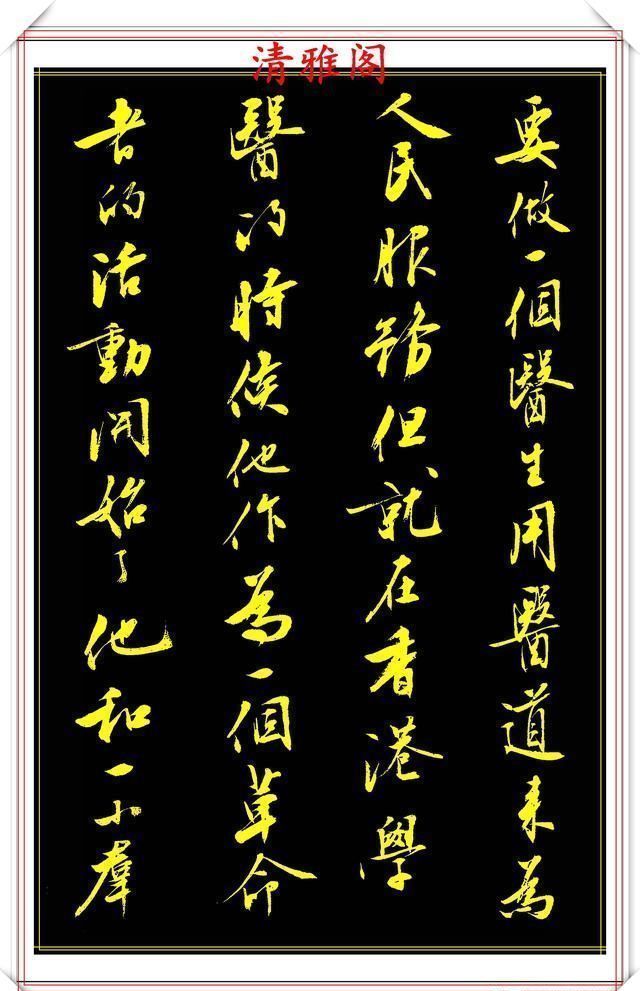 清雅阁
要做一個醫生用醫道来為
人民服務但就在香港學
醫的時候他作為一個革命
者的活動開始了他和一小羣